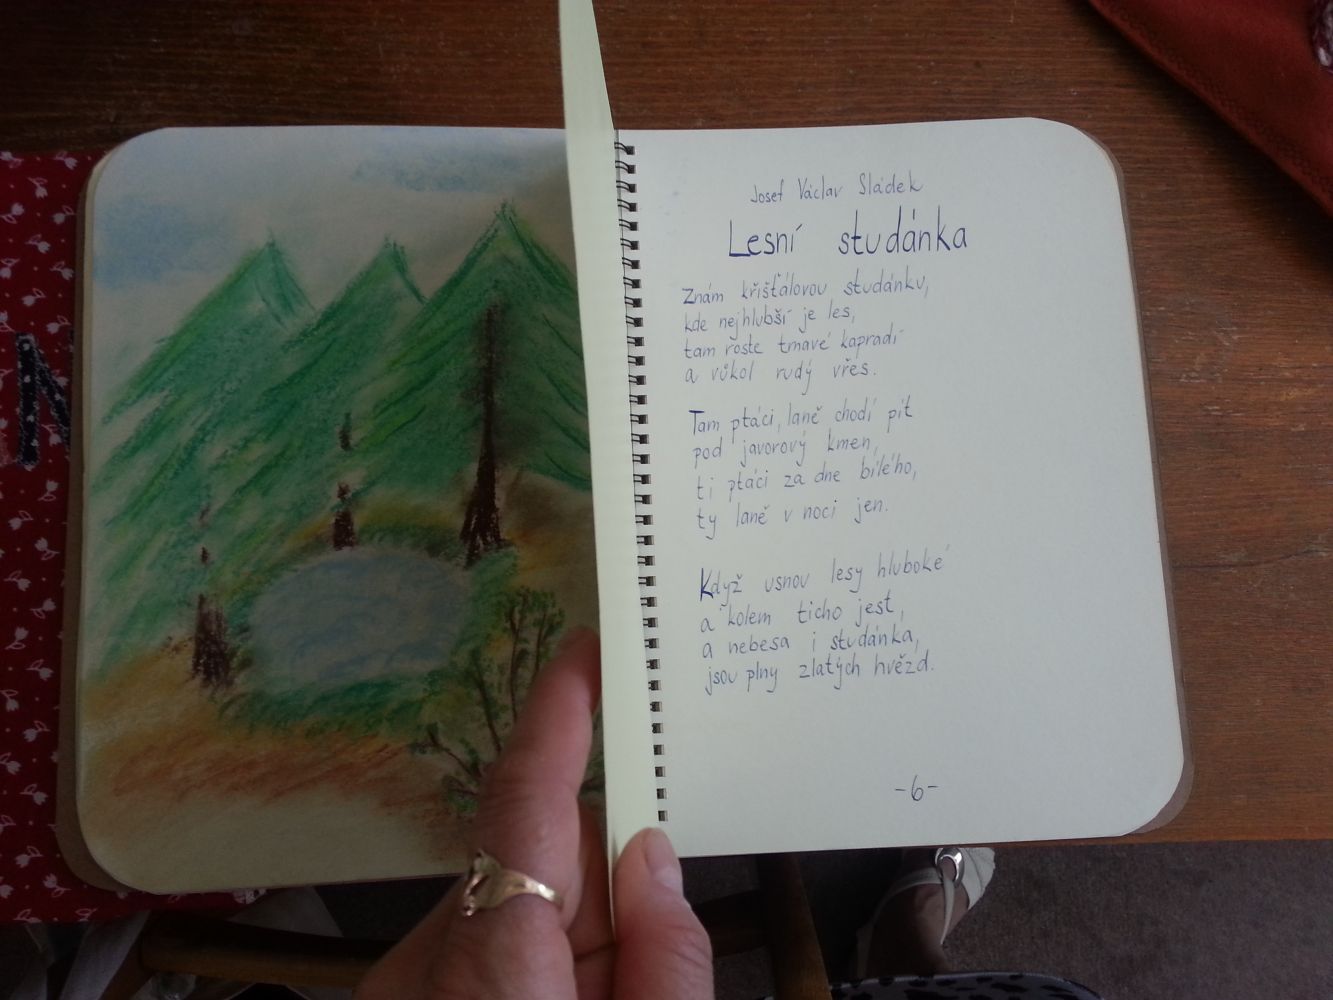 Josef Václav Sládek
Lesní studánka
Znám křišťálovou studánku,
kde nejhlubší je les,
tam roste tmavé kapradí
a vůkol rudý vřes.
Tam ptáci, laně chodí pít
pod javorový kmen,
ti ptáci za dne bílého,
ty laně v noci jen.
Když usnou lesy hluboké
a kolem ticho jest,
a nebesa i studánka,
jsou plny zlatých hvězd.
-6-
N